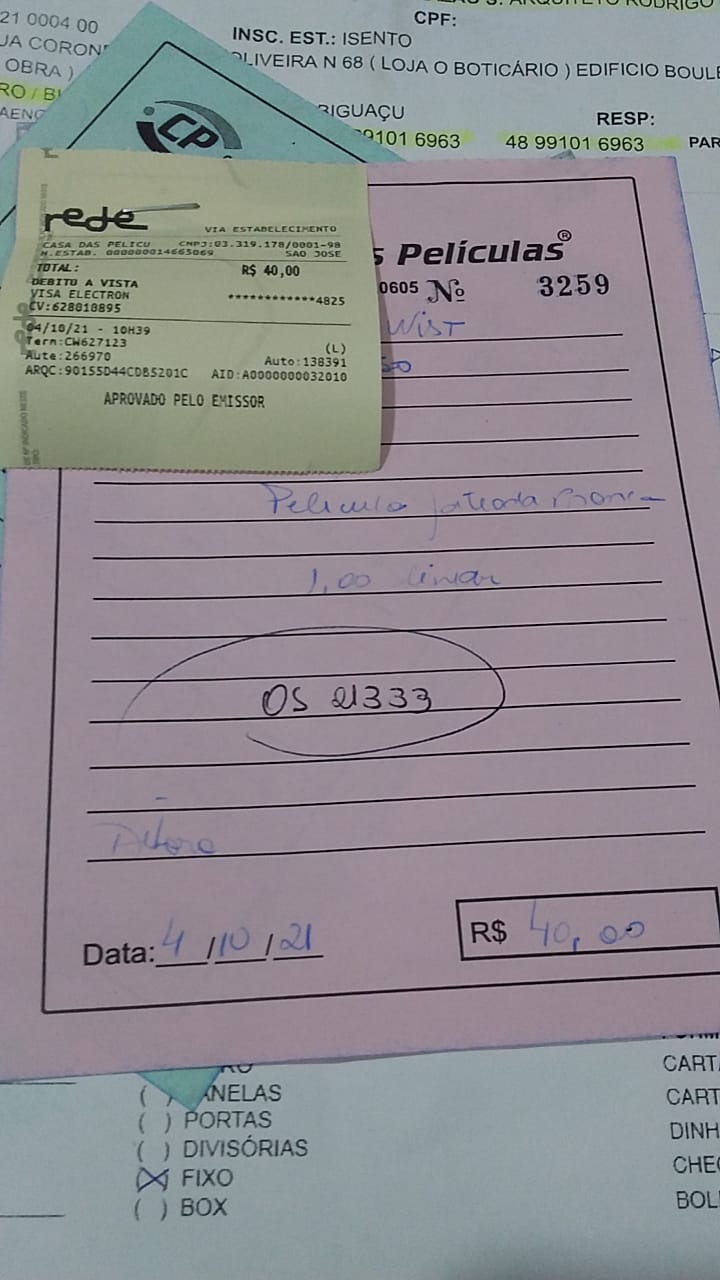 21 0004 00
CPF:
INSC. EST.: ISENTO
UA CORON
OLIVEIRA N 68 ( LOJA O BOTICÁRIO ) EDIFICIO BOULE
OBRA )
RO / B
BIGUAÇU
RESP:
99101 6963
48 99101 6963
PAR
CP
rede
VIA ESTABELECIMENTO
CASA DAS PELICU CNPJ:03.319.178/0001-98
N.ESTAB. 000000014665069 SAO JOSE
TOTAL: R$ 40,00
DEBITO A VISTA
VISA ELECTRON ************4825
CV:628010895
04/10/21 - 10H39 (L)
Term:CW627123 Auto:138391
Aute:266970
ARQC:90155D44CDB5201C AID:A0000000032010
APROVADO PELO EMISSOR
s Películas®
0605 Nº 3259
Wist
50
Pelicula jateada
1,00 linear
OS 21333
Data: 4/10/21
R$ 40,00
( ) ANELAS
( ) PORTAS
( ) DIVISÓRIAS
(X) FIXO
( ) BOX
CART
CART
DINH
CHE
BOL